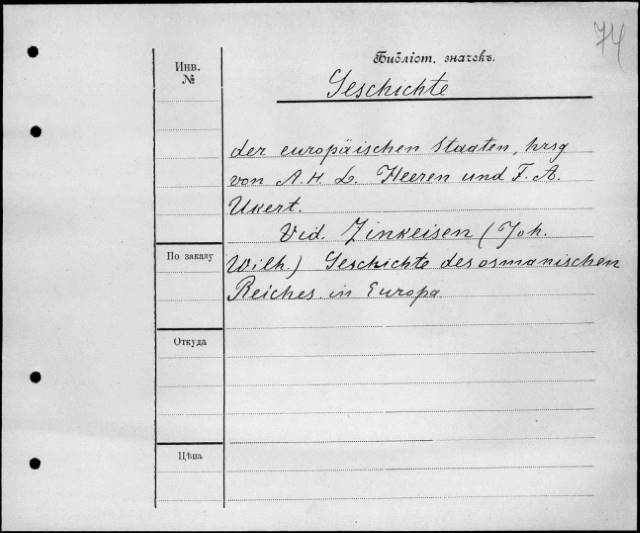 74
Библіот. значекъ.
Инв.
№
Geschichte
der europäischen Staaten, hrsg
von A. H. L. Heeren und F. A.
Ukert.
Vid. Zinkeisen (Joh.
По заказу
Wilh.) Geschichte des osmanischen
Reiches in Europa
Откуда
Цѣна